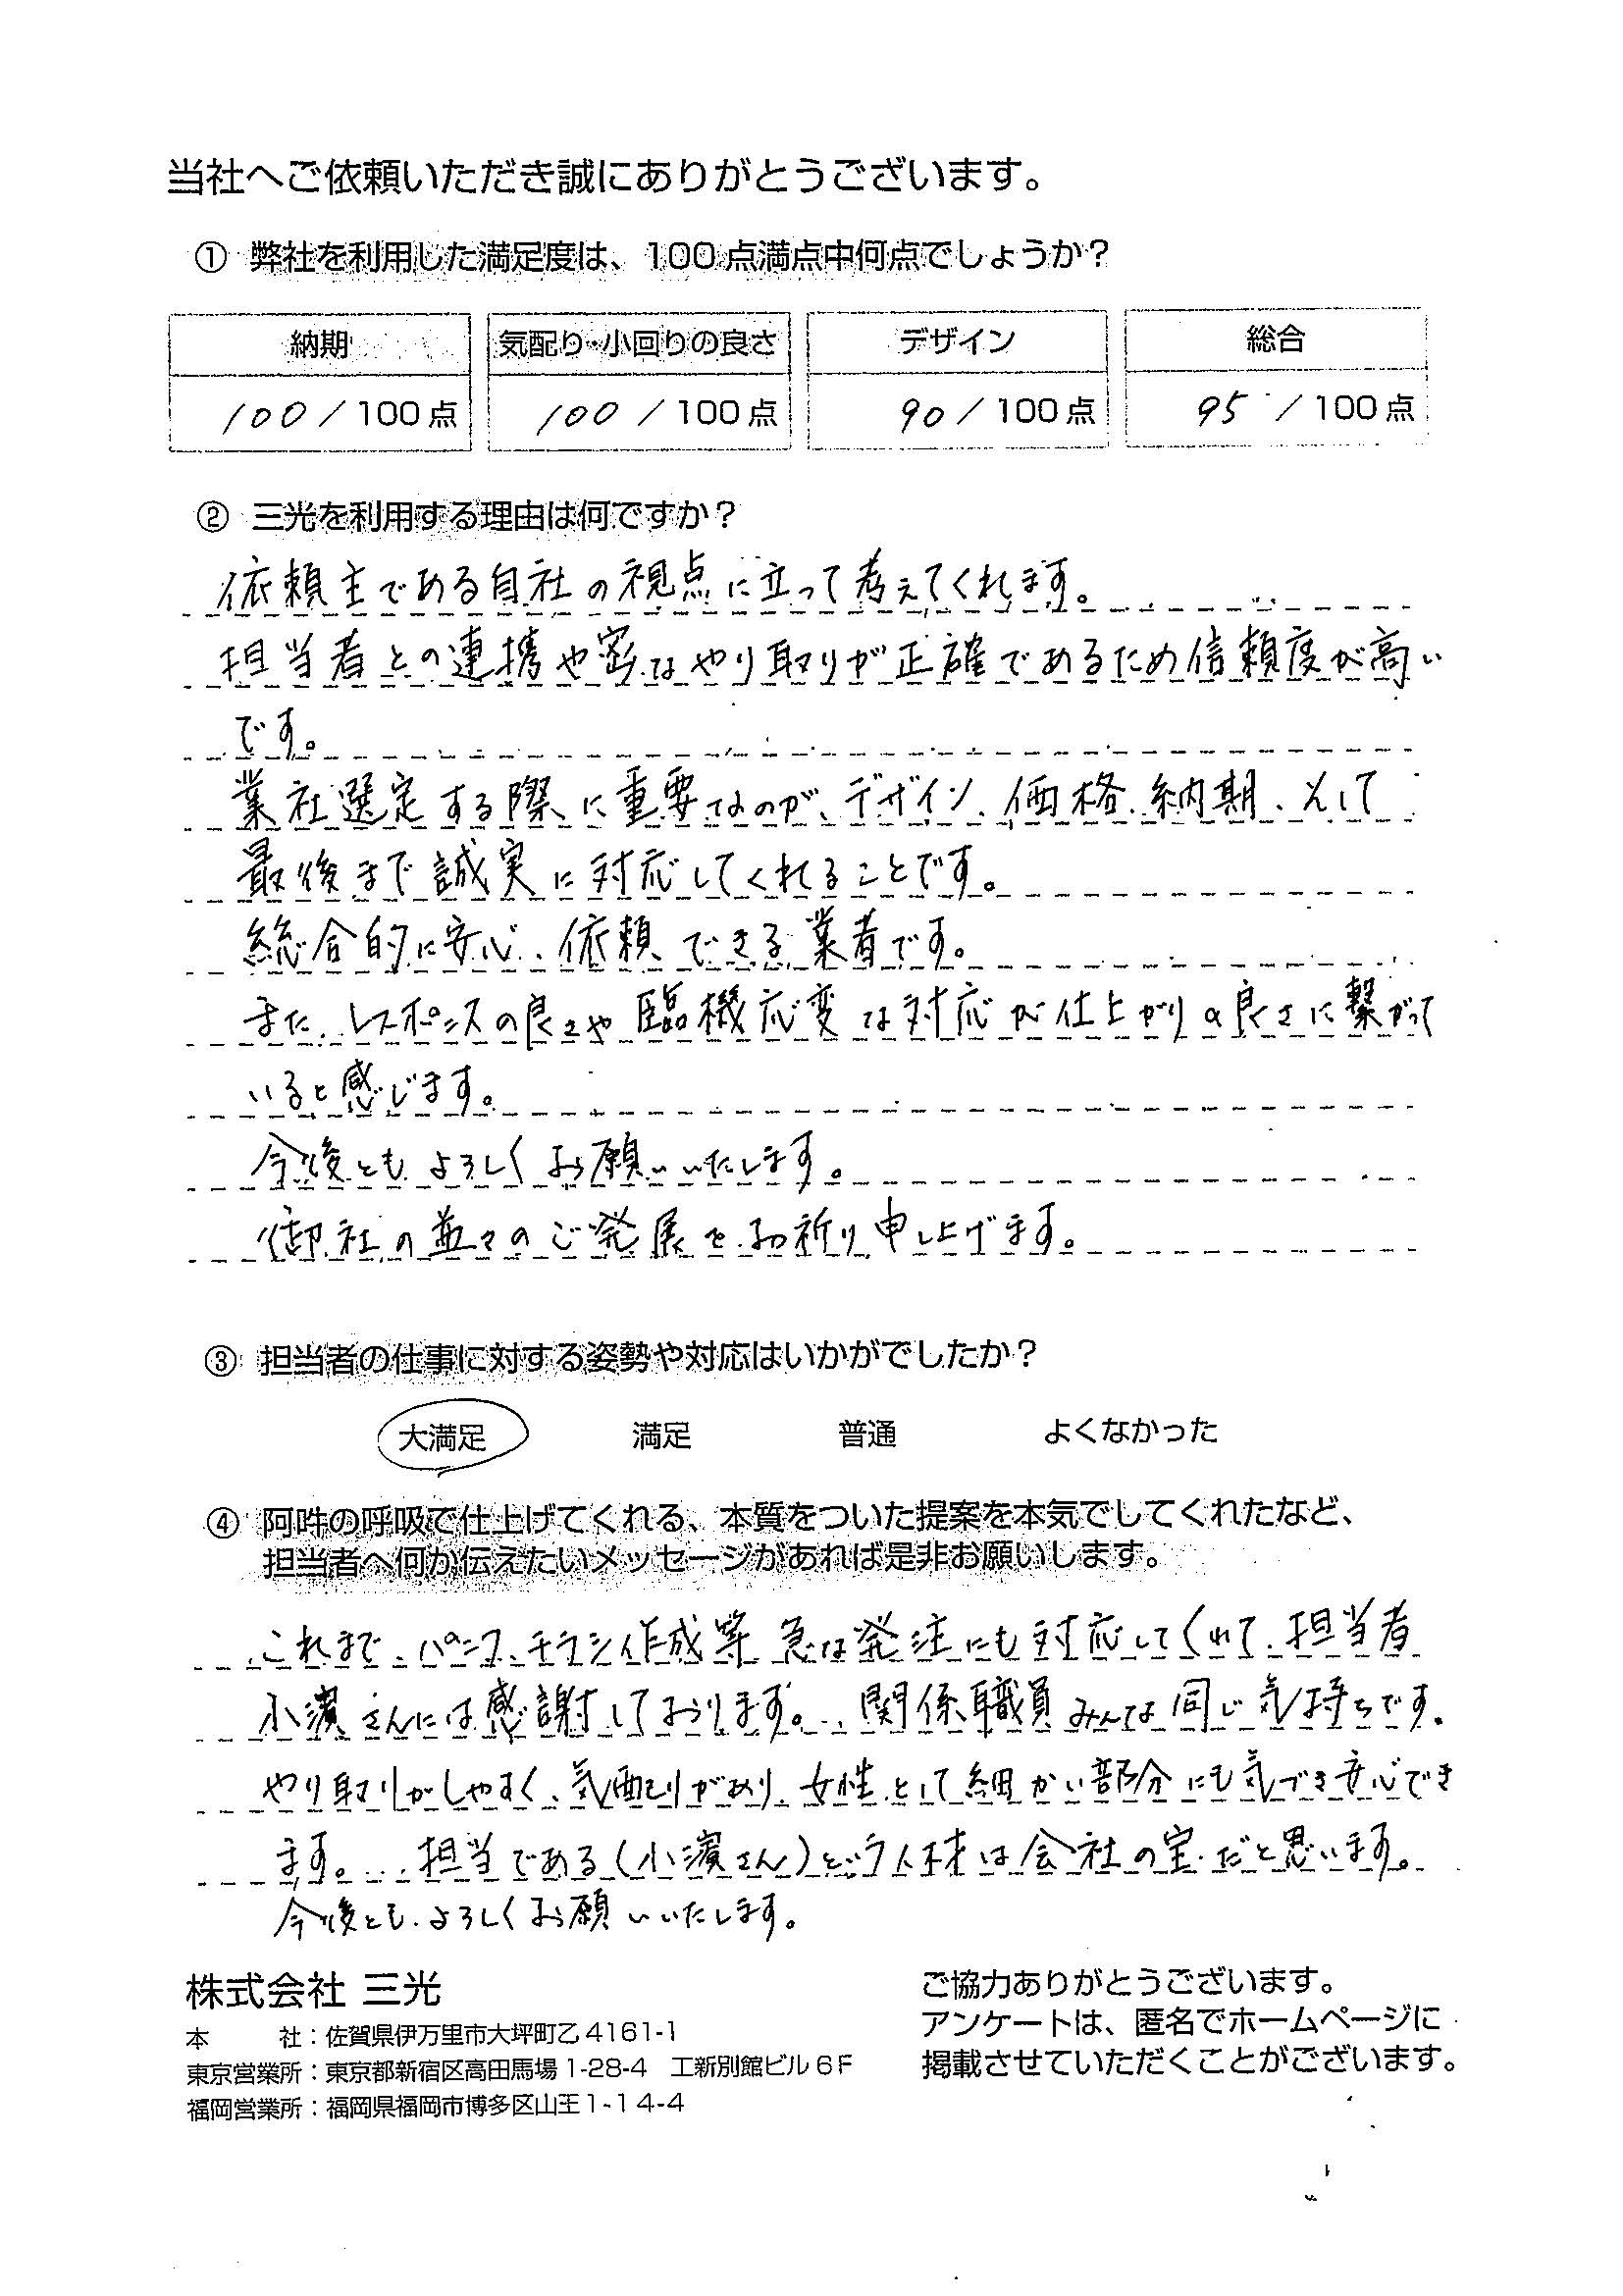 当社へご依頼いただき誠にありがとうございます。
① 弊社を利用した満足度は、100点満点中何点でしょうか？
納期 気配り・小回りの良さ デザイン 総合
100／100点 100／100点 90／100点 95／100点
② 三光を利用する理由は何ですか？
依頼主である自社の視点に立って考えてくれます。
担当者との連携や密なやり取りが正確であるため信頼度が高い
です。
業社選定する際に重要なのが、デザイン、価格、納期、そして
最後まで誠実に対応してくれることです。
総合的に安心、依頼できる業者です。
また、レスポンスの良さや臨機応変な対応が仕上がりの良さに繋がって
いると感じます。
今後ともよろしくお願いいたします。
御社の益々のご発展をお祈り申し上げます。
③ 担当者の仕事に対する姿勢や対応はいかがでしたか？
大満足 満足 普通 よくなかった
④ 阿吽の呼吸で仕上げてくれる、本質をついた提案を本気でしてくれたなど、
担当者へ何か伝えたいメッセージがあれば是非お願いします。
これまで、パンフ、チラシ作成等急な発注にも対応してくれて、担当者
小濱さんには感謝しております。関係職員みんな同じ気持ちです。
やり取りがしやすく、気配りがあり、女性として細かい部分にも気づき安心でき
ます。担当である（小濱さん）という人材は会社の宝だと思います。
今後ともよろしくお願いいたします。
株式会社 三光
本 社：佐賀県伊万里市大坪町乙4161-1
東京営業所：東京都新宿区高田馬場1-28-4 工新別館ビル6F
福岡営業所：福岡県福岡市博多区山王1-14-4
ご協力ありがとうございます。
アンケートは、匿名でホームページに
掲載させていただくことがございます。